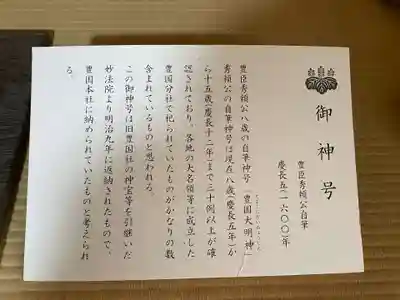 御神号
豊臣秀頼公自筆
慶長五(一六〇〇)年
豊臣秀頼公八歳の自筆神号「豊国大明神」
秀頼公の自筆神号は現在八歳(慶長五年)か
ら十五歳(慶長十二年)まで三十例以上が確
認されており、各地の大名領等に成立した
豊国分社で祀られていたものがかなりの数
含まれているものと思われる。
この御神号は旧豊国社の神宝等を引継いだ
妙法院より明治九年に返納されたもので、
豊国本社に納められていたものと考えられ
る。